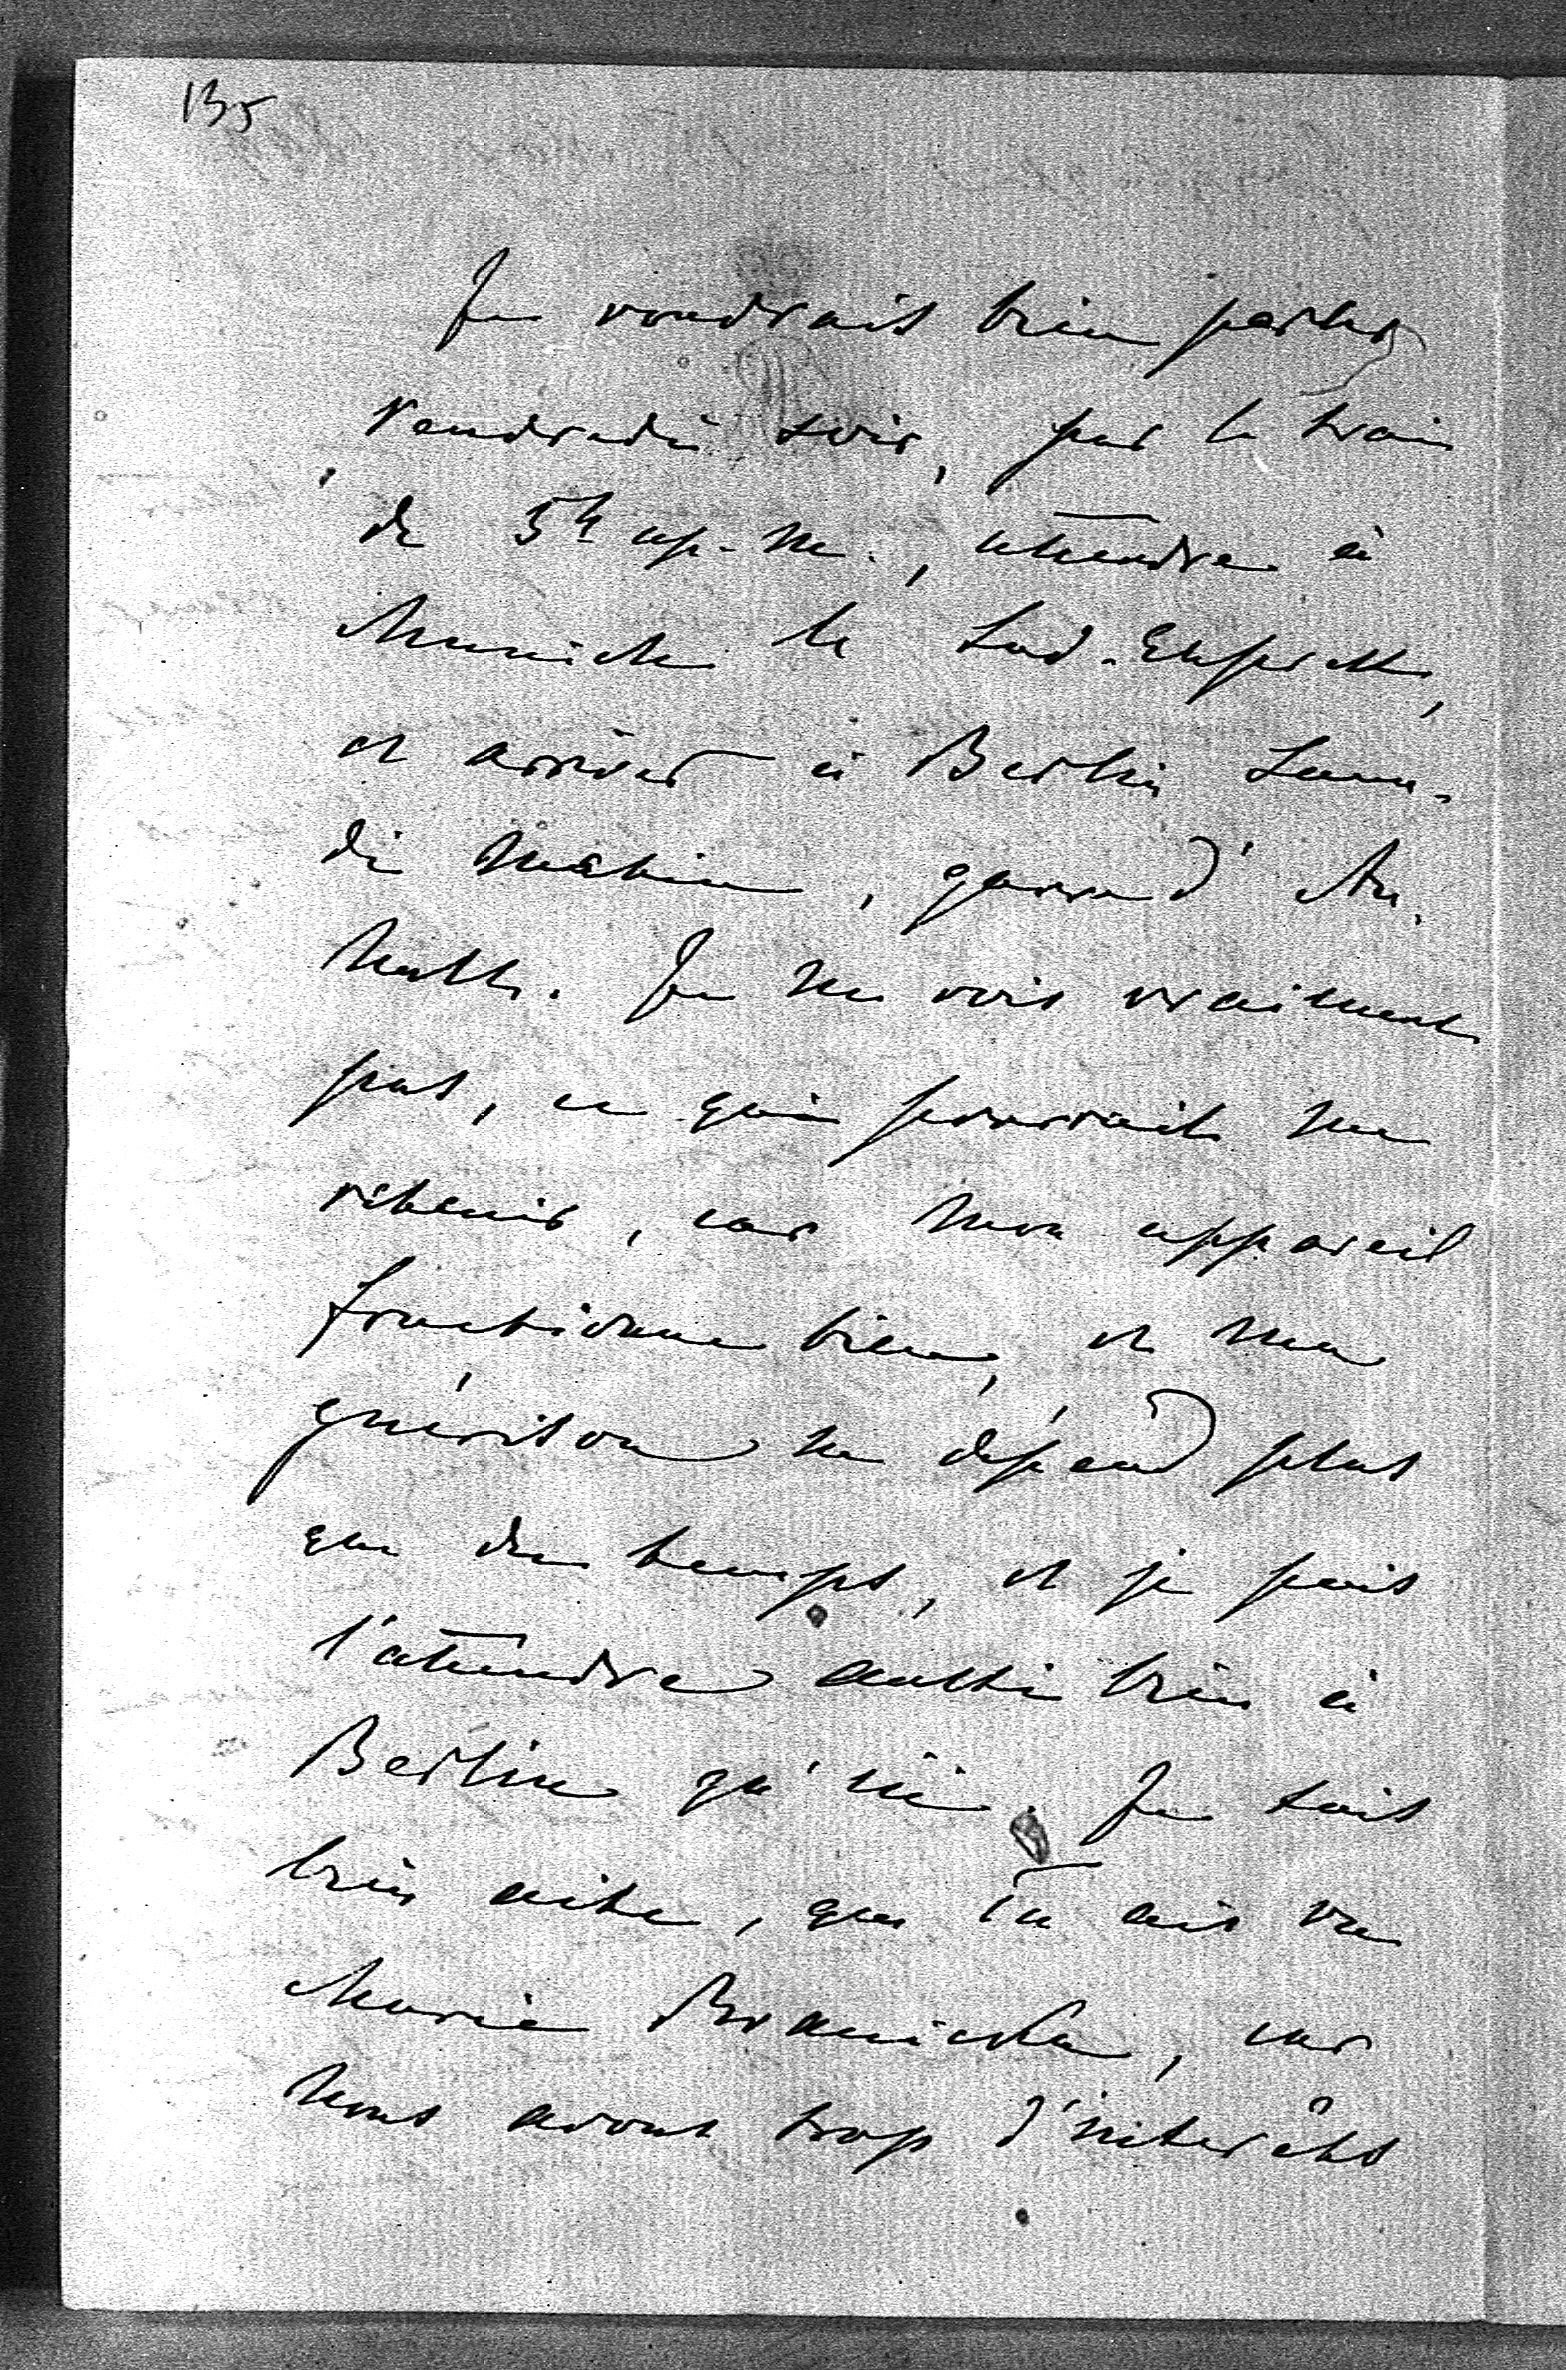 135
Je voudrais bien partir
Vendredi soir, par le train
de 5h ap. m., attendre à
Munich le Sud-Express,
et arriver à Berlin Same-
di matin, garre d'An-
halt. Je ne vois vraiment
pas, ce qui pourrait me
retenir, car mon appareil
fonctionne bien, et ma
guérison ne dépend plus
que du temps, et je puis
l'attendre aussi bien à
Berlin qu'ici. Je suis
bien aise, que Tu ais vu
Marie Branicka, car
nous avons trop d'interêts